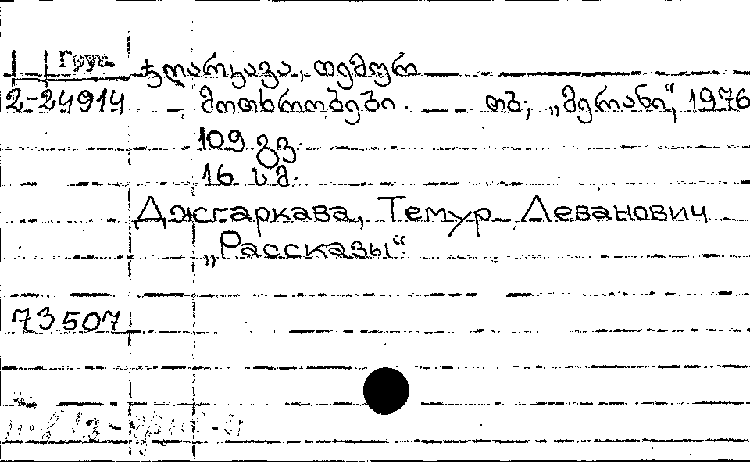 Груз.
ჯღარკავა, თემურ
2-24914 მოთხრობები. თბ; „მერანი“, 1976
109 გვ.
16 სმ.
Джгаркава, Темур Леванович
„Рассказы“.
73507